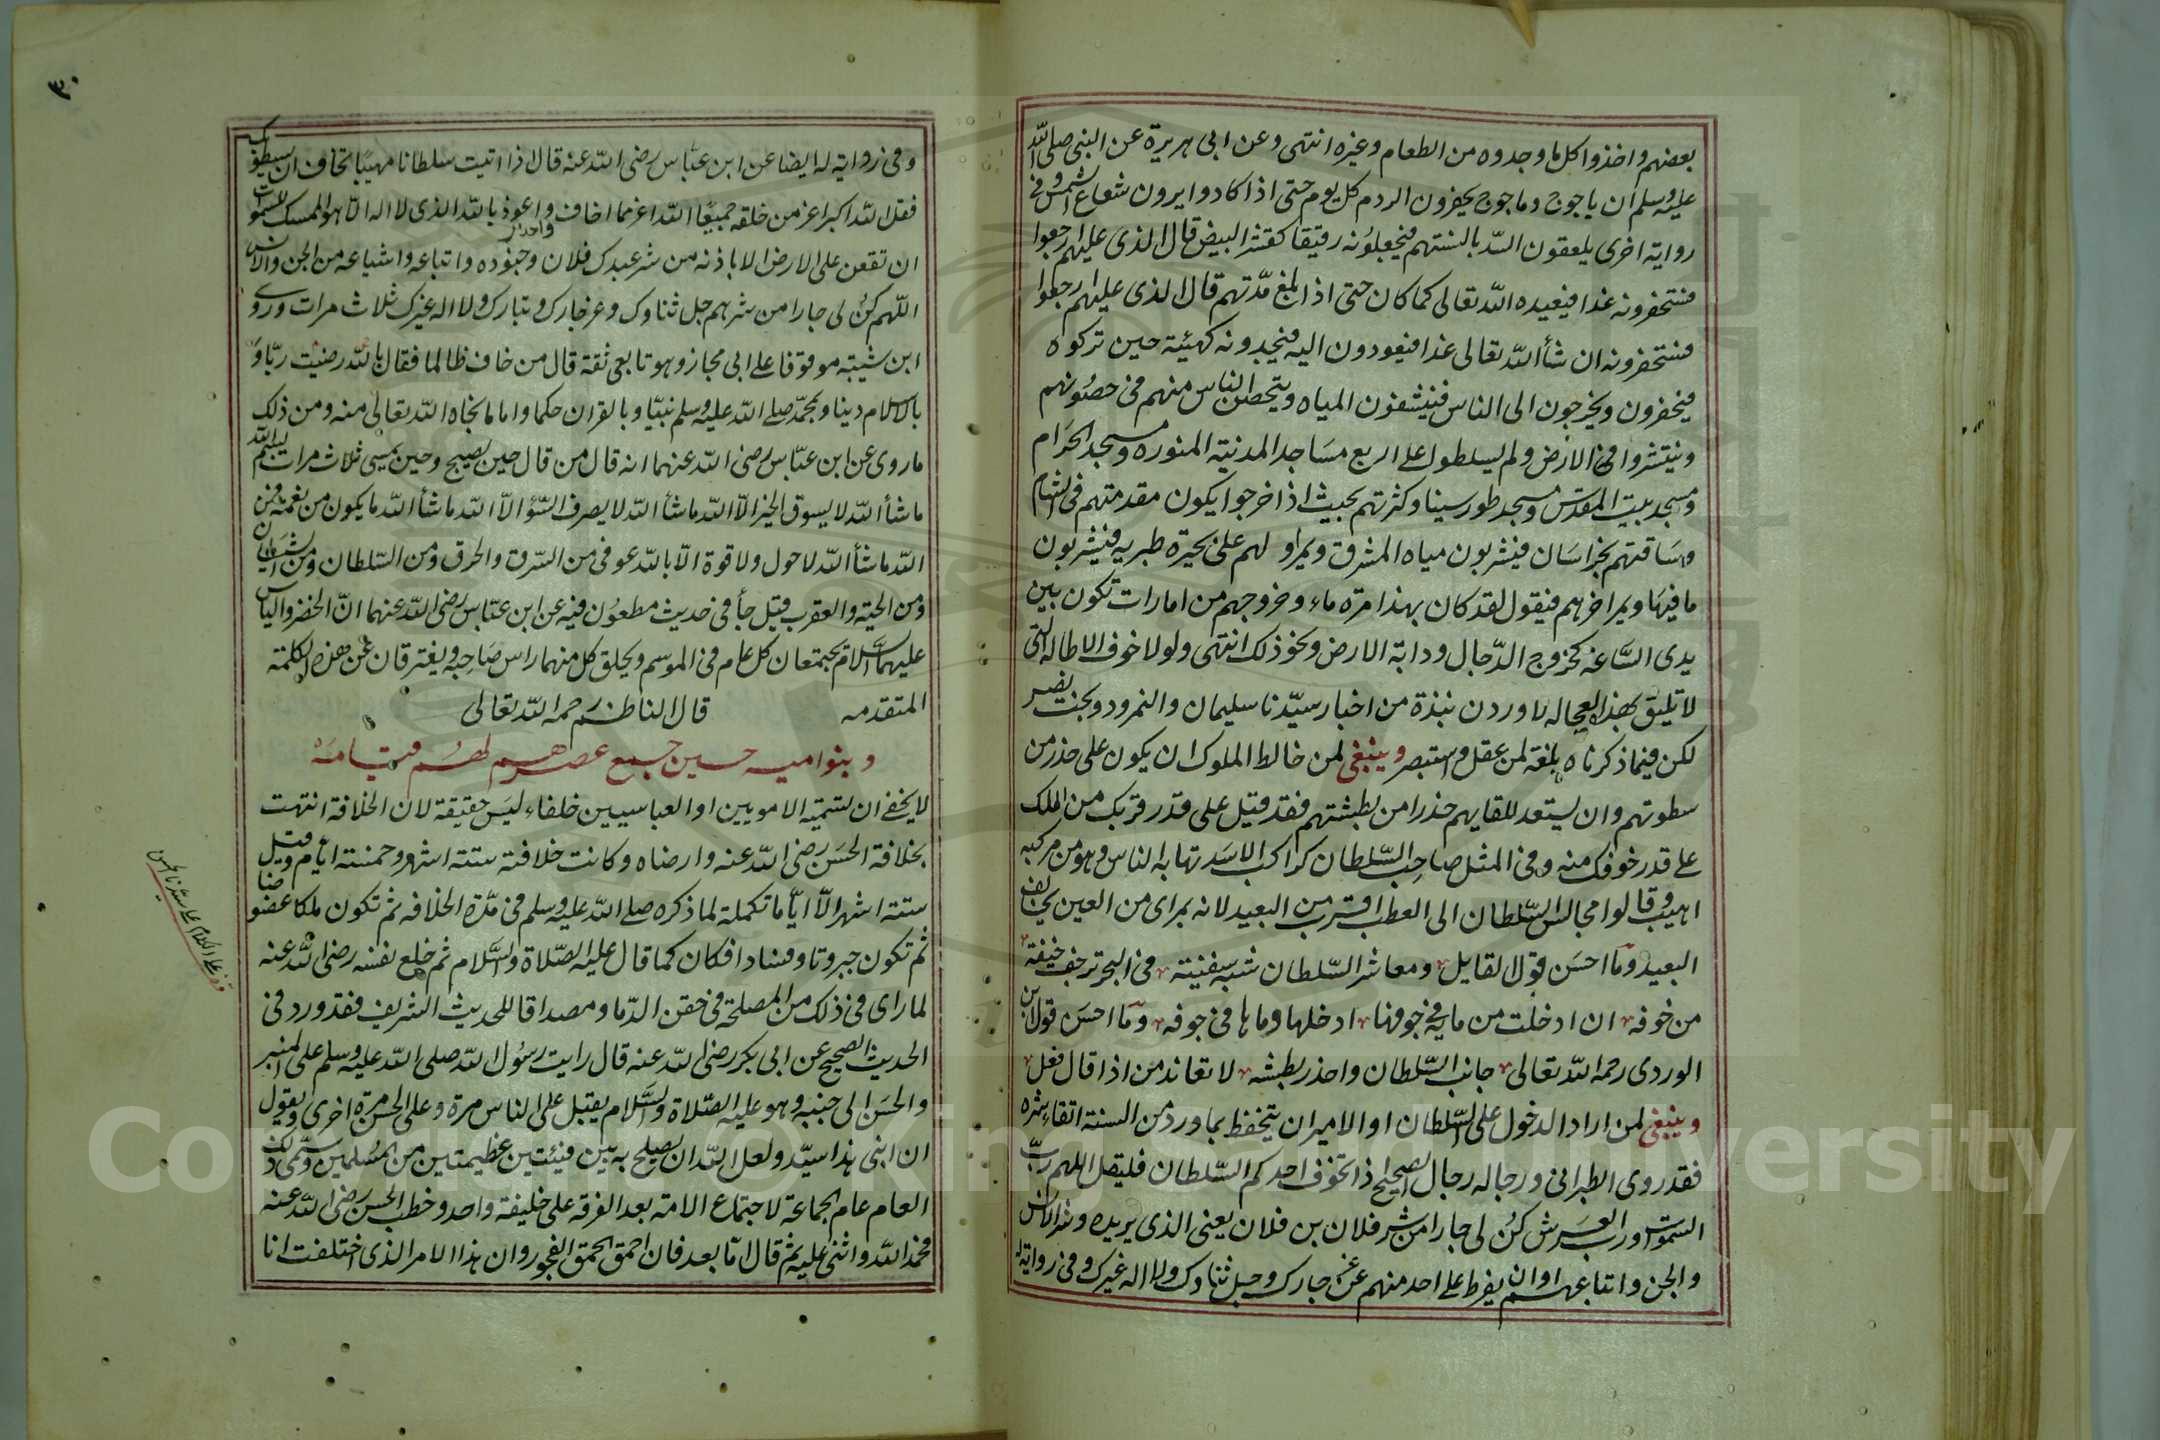 بعضهم واخذوا كل ما وجدوه من الطعام وغيره انتهى وعن ابى هريرة عن النبى صلى الله
عليه وسلم ان ياجوج وماجوج يحفرون الردم كل يوم حتى اذا كادوا يرون شعاع الشمس وفى
رواية اخرى يلعقون السد بالسنتهم فيجعلونه رقيقا كقشر البيض قال الذى عليهم ارجعوا
فستحفرونه غدا فيعيده الله تعالى كما كان حتى اذا بلغ مدتهم قال الذى عليهم ارجعوا
فستحفرونه ان شأ الله تعالى غدا فيعودون اليه فيجدونه كهيئته حين تركوه
فيحفرون ويخرجون الى الناس فينشفون المياه ويتحصن الناس منهم فى حصونهم
وينتشروا فى الارض ولم يسلطوا على اربع مساجد المدينة المنوره ومسجد الحرام
ومسجد بيت المقدس ومسجد طور سينا وكثرتهم بحيث اذا خرجوا يكون مقدمتهم فى الشام
وساقتهم بخراسان فيشربون مياه المشرق ويمر اولهم على بحيرة طبريه فيشربون
ما فيها ويمر اخرهم فيقول لقد كان بهذا مره ماء وخروجهم من امارات تكون بين
يدى الساعه كخروج الدجال ودابة الارض ونحو ذلك انتهى ولولا خوف الاطاله التى
لا تليق بهذه العجاله لاوردن نبذة من اخبار سيدنا سليمان والنمرود وبخت نصر
لكن فيما ذكرناه بلغة لمن عقل واستبصر وينبغى لمن خالط الملوك ان يكون على حذر من
سطوتهم وان يستعد للقايهم حذرا من بطشتهم فقد قيل على قدر قربك من الملك
على قدر خوفك منه وفى المثل صاحب السلطان كراكب الاسد تهابه الناس وهو من مركبه
اهيب وقالوا مجالس السلطان الى العطب اقرب من البعيد لانه بمراى من العين بخلاف
البعيد وما احسن قول القايل ومعاشر السلطان شبه سفينته فى البحر ترجف خيفة
من خوفه ان ادخلت من مايه فى جوفها ادخلها وماها فى جوفه وما احسن قول ابن
الوردى رحمه الله تعالى جانب السلطان واحذر بطشه لا تعاند من اذا قال فعل
وينبغى لمن اراد الدخول على السلطان او الامير ان يتحفظ بما ورد من السنة اتقاء شره
فقد روى الطبرانى ورجاله رجال الصحيح اذا تخوف احدكم السلطان فليقل اللهم رب
السموات ورب العرش كن لى جارا من شر فلان بن فلان يعنى الذى يريده وشر الانس
والجن واتباعهم او ان يفرط على احد منهم عز جارك وجل ثناوك ولا اله غيرك وفى رواية له
٣٠
وفى رواية له ايضا عن ابن عباس رضى الله عنه قال اذا اتيت سلطانا مهيبا تخاف ان يسطو بك
فقل الله اكبر اعز من خلقه جميعا الله اعز مما اخاف واحذر واعوذ بالله الذى لا اله الا هو الممسك للسموات
ان تقعن على الارض الا باذنه من شر عبدك فلان وجنوده واتباعه واشياعه من الجن والانس
اللهم كن لى جارا من شرهم جل ثناوك وعز جارك وتبارك ولا اله غيرك ثلاث مرات وروى
ابن شيبه موقوفا على ابى مجاز وهو تابعى ثقة قال من خاف ظالما فقال بالله رضيت ربا و
بالاسلام دينا وبمحمد صلى الله عليه وسلم نبيا وبالقران حكما واماما نجاه الله تعالى منه ومن ذلك
ما روى عن ابن عباس رضى الله عنهما انه قال من قال حين يصبح وحين يمسى ثلاث مرات بسم الله
ما شأ الله لا يسوق الخير الا الله ما شأ الله لا يصرف السؤ الا الله ما شأ الله ما يكون من نعمة فمن
الله ما شأ الله لا حول ولا قوة الا بالله عوفى من السرق والحرق ومن السلطان ومن الشيطان
ومن الحية والعقرب قيل جأ فى حديث مطعون فيه عن ابن عباس رضى الله عنهما ان الخضر والياس
عليهما السلام يجتمعان كل عام فى الموسم ويحلق كل منهما راس صاحبه ويفترقان عن هذه الكلمة
المتقدمه قال الناظم رحمه الله تعالى
وبنوا اميه حسين جمع عصرهم لهم قيامه
لا يخفى ان تسمية الامويين او العباسيين خلفاء ليس حقيقة لان الخلافة انتهت
بخلافة الحسن رضى الله عنه وارضاه وكانت خلافته ستة اشهر وخمسة ايام وقيل
ستة اشهر الا اياما تكملة لما ذكره صلى الله عليه وسلم فى مدة الخلافه ثم تكون ملكا عضوضا
ثم تكون جبروتا وفسادا فكان كما قال عليه الصلاة والسلام ثم خلع نفسه رضى الله عنه
لما راى فى ذلك من المصلحة فى حقن الدما ومصداقا للحديث الشريف فقد ورد فى
الحديث الصحيح عن ابى بكر رضى الله عنه قال رايت رسول الله صلى الله عليه وسلم على المنبر
والحسن الى جنبه وهو عليه الصلاة والسلام يقبل على الناس مرة وعلى الحسن مرة اخرى ويقول
ان ابنى هذا سيد ولعل الله ان يصلح به بين فئتين عظيمتين من المسلمين وسمى ذلك
العام عام الجماعة لاجتماع الامة بعد الفرقه على خليفة واحد وخطب الحسن رضى الله عنه
فحمد الله واثنى عليه ثم قال اما بعد فان احمق الحمق الفجور وان هذا الامر الذى اختلفت انا
الكلام على سيدنا الحسن
Copyright © King Saud University